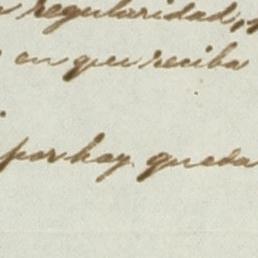 regularidad,
en que reciba
por hoy queda